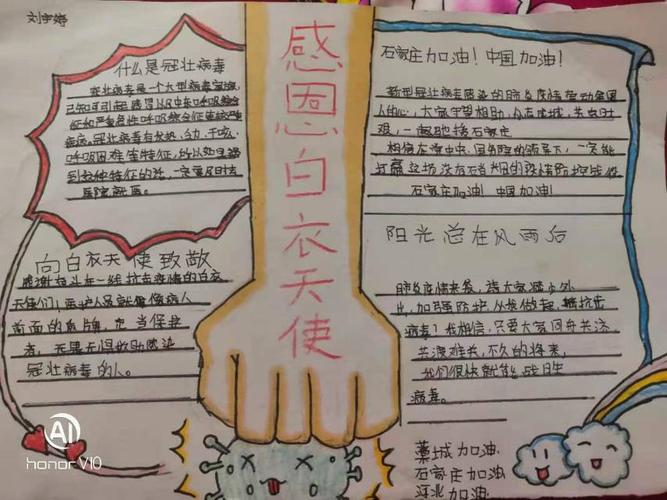 刘宇婷
感恩白衣天使
什么是冠壮病毒
冠壮病毒是一个大型病毒家族,
已知可引起感冒以及中东呼吸综合
征和严重急性呼吸综合征等较严重
疾病。冠壮病毒有发热、乏力、干咳、
呼吸困难等特征,所以如果遇
到这种特征的话,一定要及时去
医院就医。
向白衣天使致敬
感谢奋斗在一线抗击疫情的白衣
天使们,医护人员就像病人
前面的盾牌,充当保护
者,无畏无惧救助感染
冠壮病毒的人。
石家庄加油!中国加油!
新型冠壮病毒感染的肺炎疫情牵动全国
人的心,大家守望相助,众志成城,共克时
艰,一起驰援石家庄
相信在党中央、国务院的领导下,一定能
打赢这场没有硝烟的疫情防控战役
石家庄加油!中国加油!
阳光总在风雨后
肺炎疫情来袭,请大家减少外
出,加强防护,从我做起,抵抗
病毒!我相信,只要大家同舟共济,
共渡难关,不久的将来,
我们很快就能战胜
病毒。
藁城加油
石家庄加油
河北加油
AI
honor V10